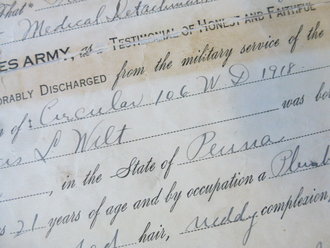 That Medical Detachment
ES ARMY, as a TESTIMONIAL OF HONEST AND FAITHFUL
ORABLY DISCHARGED from the military service of the
of: Circular 106 W D 1918
L Wilt was bor
, in the State of Penna
s 21 years of age and by occupation a Plumb
hair, ruddy complexion,